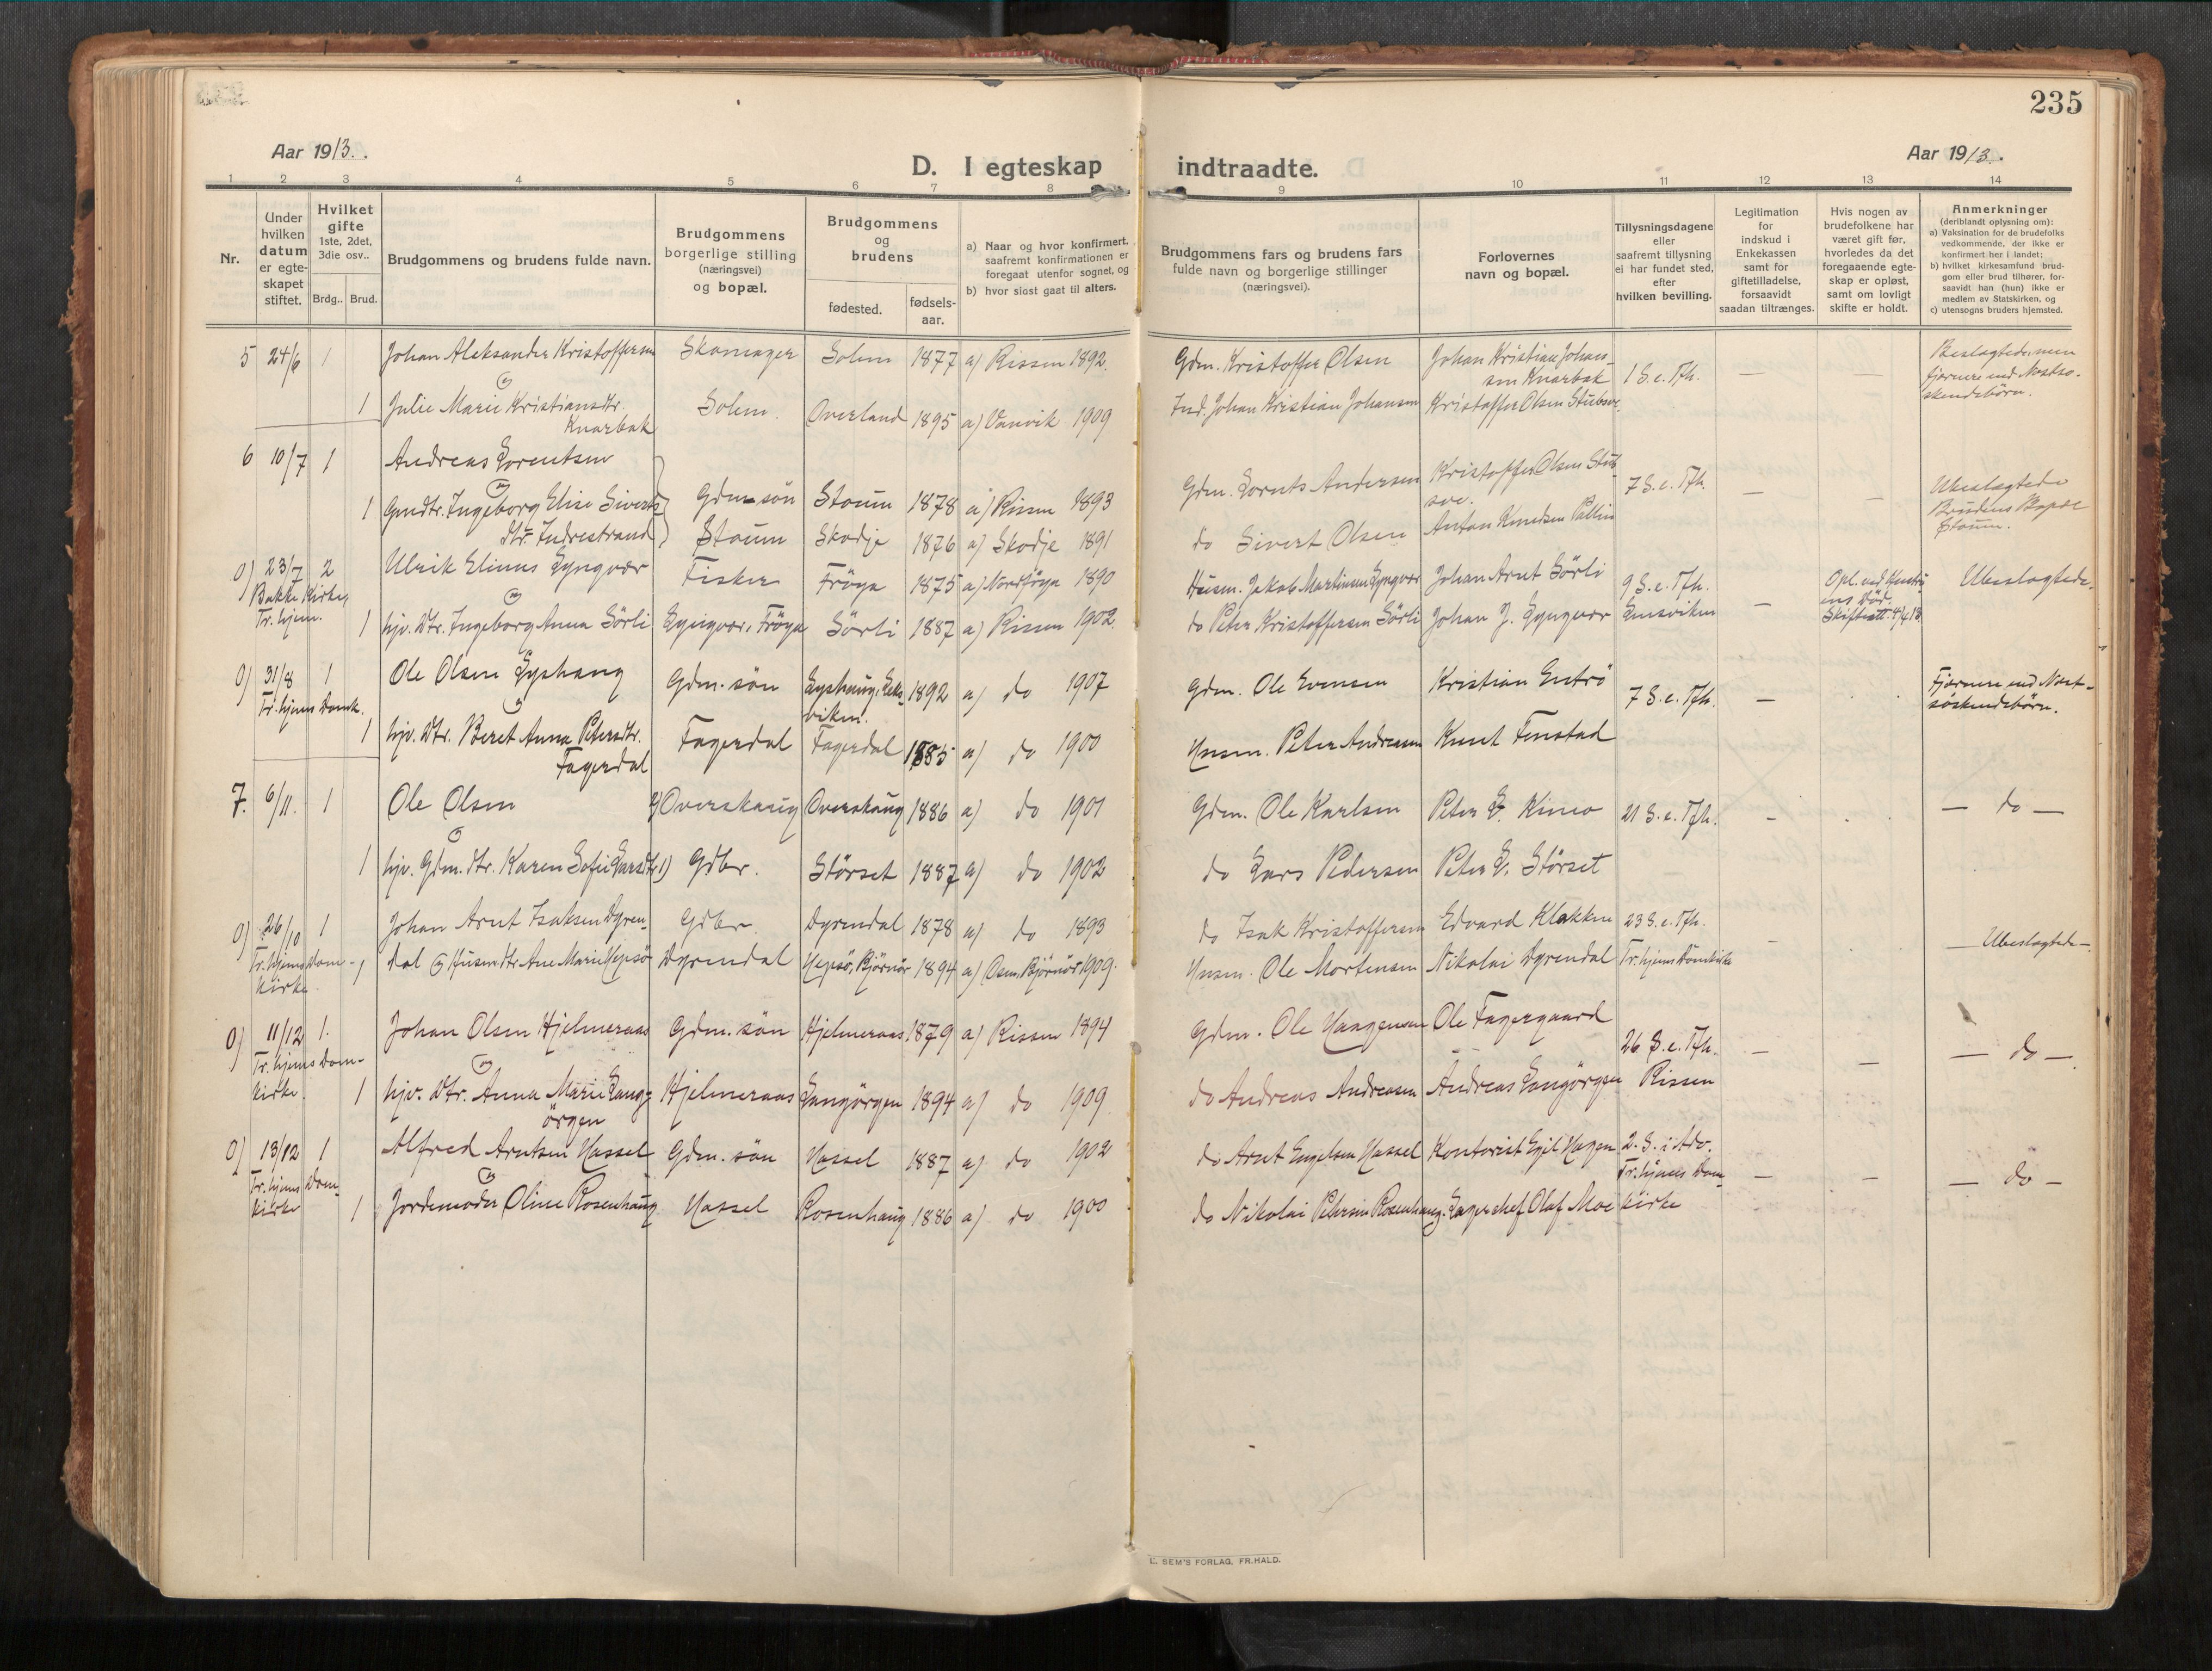 235
Aar 1913.
Aar 1913.
D. I egteskap indtraadte.
1 2 3 4 5 6 7 8 9 10 11 12 13 14
Nr.
Under hvilken datum er egte-skapet stiftet.
Hvilket gifte 1ste, 2det, 3die osv..
Brdg.. Brud.
Brudgommens og brudens fulde navn.
Brudgommens borgerlige stilling (næringsvei) og bopæl.
Brudgommens og brudens
fødested.
fødsels-aar.
a) Naar og hvor konfirmert, saafremt konfirmationen er foregaat utenfor sognet, og
b) hvor sidst gaat til alters.
Brudgommens fars og brudens fars fulde navn og borgerlige stillinger (næringsvei).
Forlovernes navn og bopæl.
Tillysningsdagene eller saafremt tillysning ei har fundet sted, efter hvilken bevilling.
Legitimation for indskud i Enkekassen samt for giftetilladelse, forsaavidt saadan tiltrænges.
Hvis nogen av brudefolkene har været gift før, hvorledes da det foregaaende egte-skap er opløst, samt om lovligt skifte er holdt.
Anmerkninger (deriblandt oplysning om):
a) Vaksination for de brudefolks vedkommende, der ikke er konfirmert her i landet;
b) hvilket kirkesamfund brud-gom eller brud tilhører, for-saavidt han (hun) ikke er medlem av Statskirken, og
c) utensogns bruders hjemsted.
5 24/6 1 Johan Aleksander Kristoffersen Skomager Solem 1877 a) Rissen 1892. Gdm. Kristoffer Olsen Johan Kristian Johan-sen Knarbak 1 S. e. Tfh. — — Beslegtede, men fjernere end Næstsø-skendebörn.
og
1 Julie Marie Kristiansdtr. Knarbak Solem. Overland 1895 a) Vanvik 1909 Ind. Johan Kristian Johansen Kristoffer Olsen Stubsve.
6 10/7 1 Andreas Lorentsen Gdm. søn Stoum 1878 a) Rissen 1893 Gdm. Lornts Andersen Kristoffer Olsen Stub-sve. 7 S. e. Tfh. — — Ubeslegtede Brudens Bopæl Stoum.
og
1 Gmdtr. Ingeborg Elise Siverts-dtr. Indrestrand Stoum Skodje 1876 a) Skodje 1891 do Sivert Olsen Anton Knudsen Pallin
0) 23/7 Bakke Kirke, Tr.hjem. 2 Ulrik Elinus Lyngvær Fisker Fröya 1875 a) Nordfröya 1890 Husm. Jakob Martinsen Lyngvær Johan Arnt Sörli 9 S. e. Tfh. Opl. ved Hustru-ens Död. Skifteatt. 4/4 13. Ubeslegtede.
og
1 hjv. Dtr. Ingeborg Anna Sörli Lyngvær, Fröya Sörli 1887 a) Rissen 1902. do Peter Kristoffersen Sörli Johan J. Lyngvær Lensviken —
0) 31/8 Tr.hjems Domk. 1 Ole Olsen Lyshaug Gdm. søn Lyshaug, Leks-viken. 1892 a) do 1907 Gdm. Ole Evensen Kristian Entrö 7 S. e. Tfh. — Fjernere end Næst-söskendebörn.
og
1 hjv. Dtr. Beret Anna Petersdtr. Fagerdal Fagerdal Fagerdal 1885 a) do 1900 Husm. Peter Andreasen Knut Fenstad
7. 6/11. 1 Ole Olsen 2) Overskaug Overskaug 1886 a) do 1901 Gdm. Ole Karlsen Peter L. Kimo 21 S. e. Tfh. - — do —
og
1 hjv. Gdm. dtr. Karen Sofie Larsdtr. 1) Gdbr. Störset 1887 a) do 1902 do Lars Pedersen Peter L. Störset
0) 26/10 Tr.hjems Dom-kirke 1 Johan Arnt Isaksen Dyren- Gdbr. Dyrendal 1878 a) do 1893 do Isak Kristoffersen Edvard Klakken 23 S. e. Tfh. — Ubeslegtede —
1 dal og Husm.dtr. Ane Marie Hepsø Dyrendal Hepsö, Björnör 1894 a) Osen, Björnör 1909. Husm. Ole Mortensen Nikolai Dyrendal Tr.hjems Domkirke
0) 11/12 Tr.hjems Dom-kirke. 1. Johan Olsen Hjelmeraas Gdm. søn Hjelmeraas 1879 a) Rissen 1894 Gdm. Ole Haagensen Ole Fagergaard 26 S. e. Tfh. — — — do —
og
1 hjv. Dtr. Anna Marie Lang-örgen Hjelmeraas Langörgen 1894 a) do 1909 do Andreas Andreasen Andreas Langörgen Rissen
0) 13/12 Tr.hjems Dom-kirke 1 Alfred Arntsen Hassel Gdm. søn Hassel 1887 a) do 1902 do Arnt Engelsen Hassel Kontorist Egil Hagen 2. S. i Adv. Tr.hjems Dom- — — — do —
og
1 Jordemoder Oline Rosenhaug Hassel Rosenhaug 1886 a) do 1900 do Nikolai Petersen Rosenhaug. Lagerchef Olaf Moe kirke
E. SEM'S FORLAG, FR.HALD.